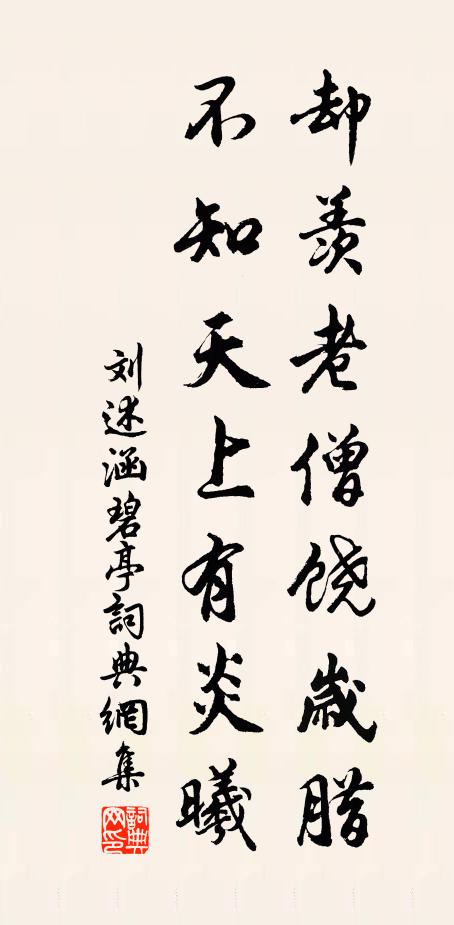 却羡老僧饶岁腊
不知天上有炎曦
刘述涵碧亭詞典網集
詞典网印